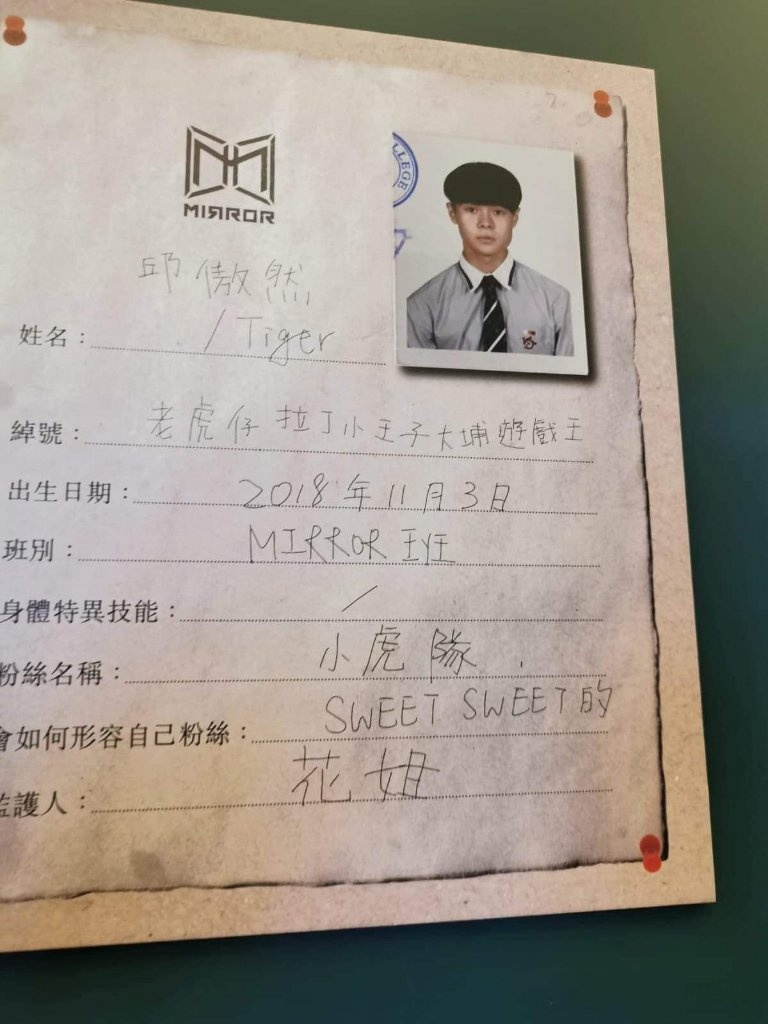 MIRROR
LLEGE
邱傲然
姓名： / Tiger
綽號： 老虎仔 拉丁小王子 大埔遊戲王
出生日期： 2018年11月3日
班別： MIRROR 班
身體特異技能： /
粉絲名稱： 小虎隊.
會如何形容自己粉絲： SWEET SWEET的
監護人： 花姐